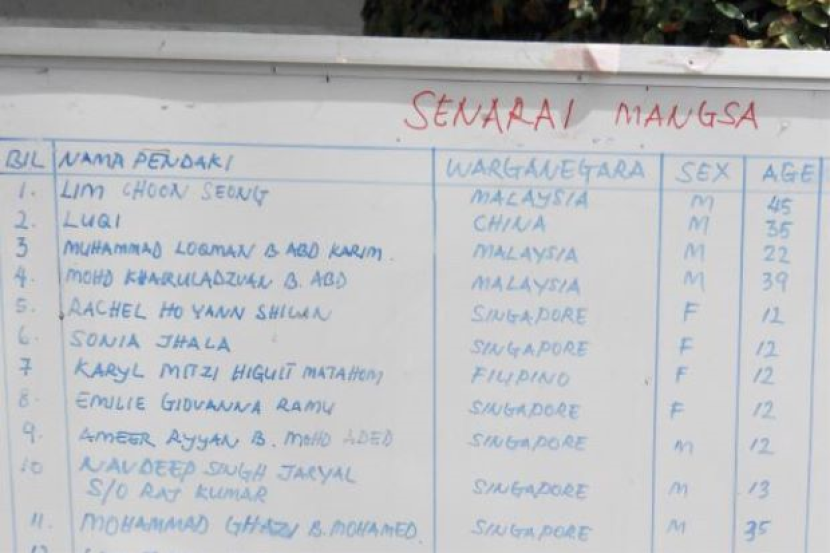 SENARAI MANGSA
BIL NAMA PENDAKI WARGANEGARA SEX AGE
1. LIM CHOON SEONG MALAYSIA M 45
2. LUQI CHINA M 35
3 MUHAMMAD LOQMAN B. ABD KARIM. MALAYSIA M 22
4. MOHD KHARULADZUAN B. ABD MALAYSIA M 39
5. RACHEL HO YANN SHIUAN SINGAPORE F 12
6. SONIA JHALA SINGAPORE F 12
7 KARYL MITZI HIGULI MATAHOM FILIPINO F 12
8. EMILIE GIOVANNA RAMU SINGAPORE F 12
9. AMEER RYYAN B. MOHD ADED SINGAPORE M 12
10 NAVDEEP SINGH JARYAL
S/O RAJ KUMAR SINGAPORE M 13
11. MOHAMMAD GHAZI B. MOHAMED. SINGAPORE M 35